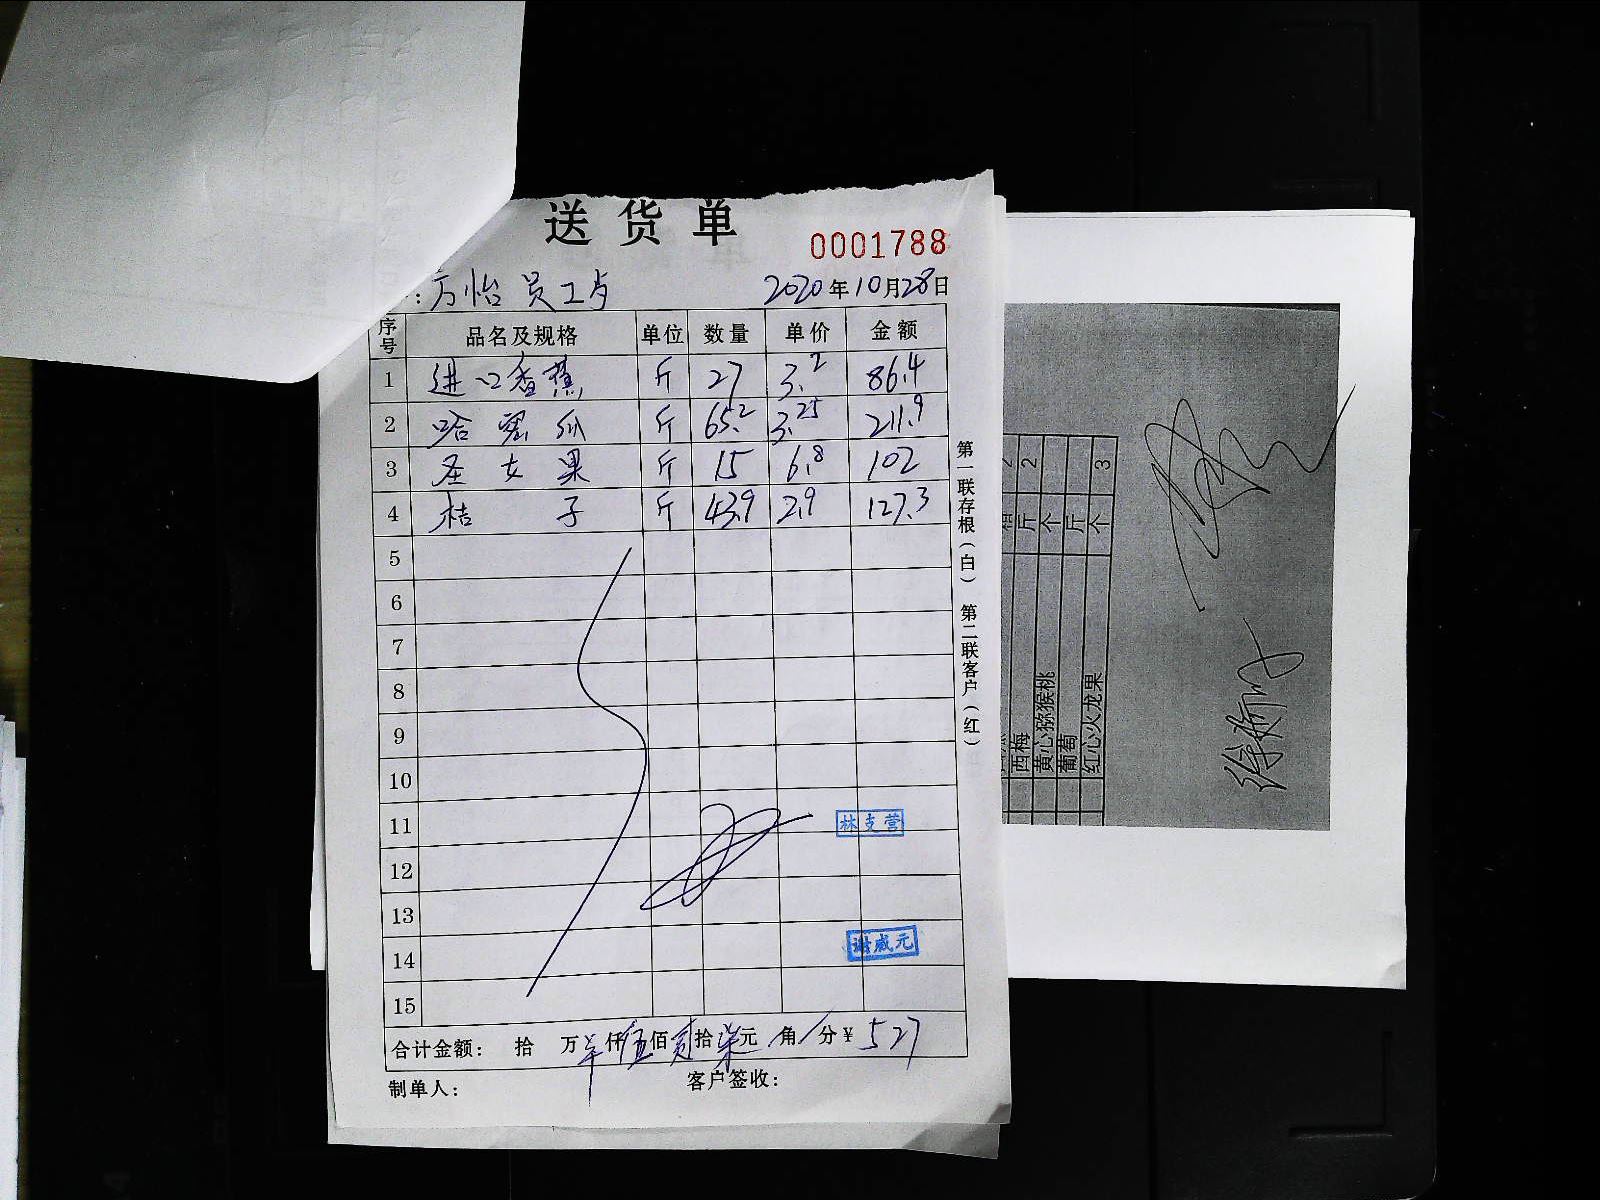 送货单
0001788
:方怡员工 2020年10月28日
序号 品名及规格 单位 数量 单价 金额
1 进口香蕉 斤 27 3.2 86.4
2 哈密瓜 斤 65.2 3.25 211.9
3 圣女果 斤 15 6.8 102
4 桔子 斤 43.9 2.9 127.3
5
6
7
8
9
10
11 林支营
12
13
14 谢威元
15
合计金额: 拾 万 仟伍佰贰拾柒元 角 分¥527
制单人: 客户签收:
第一联存根(白) 第二联客户(红)
西梅 斤 2
黄心猕猴桃 个
葡萄 斤
红心火龙果 个 3